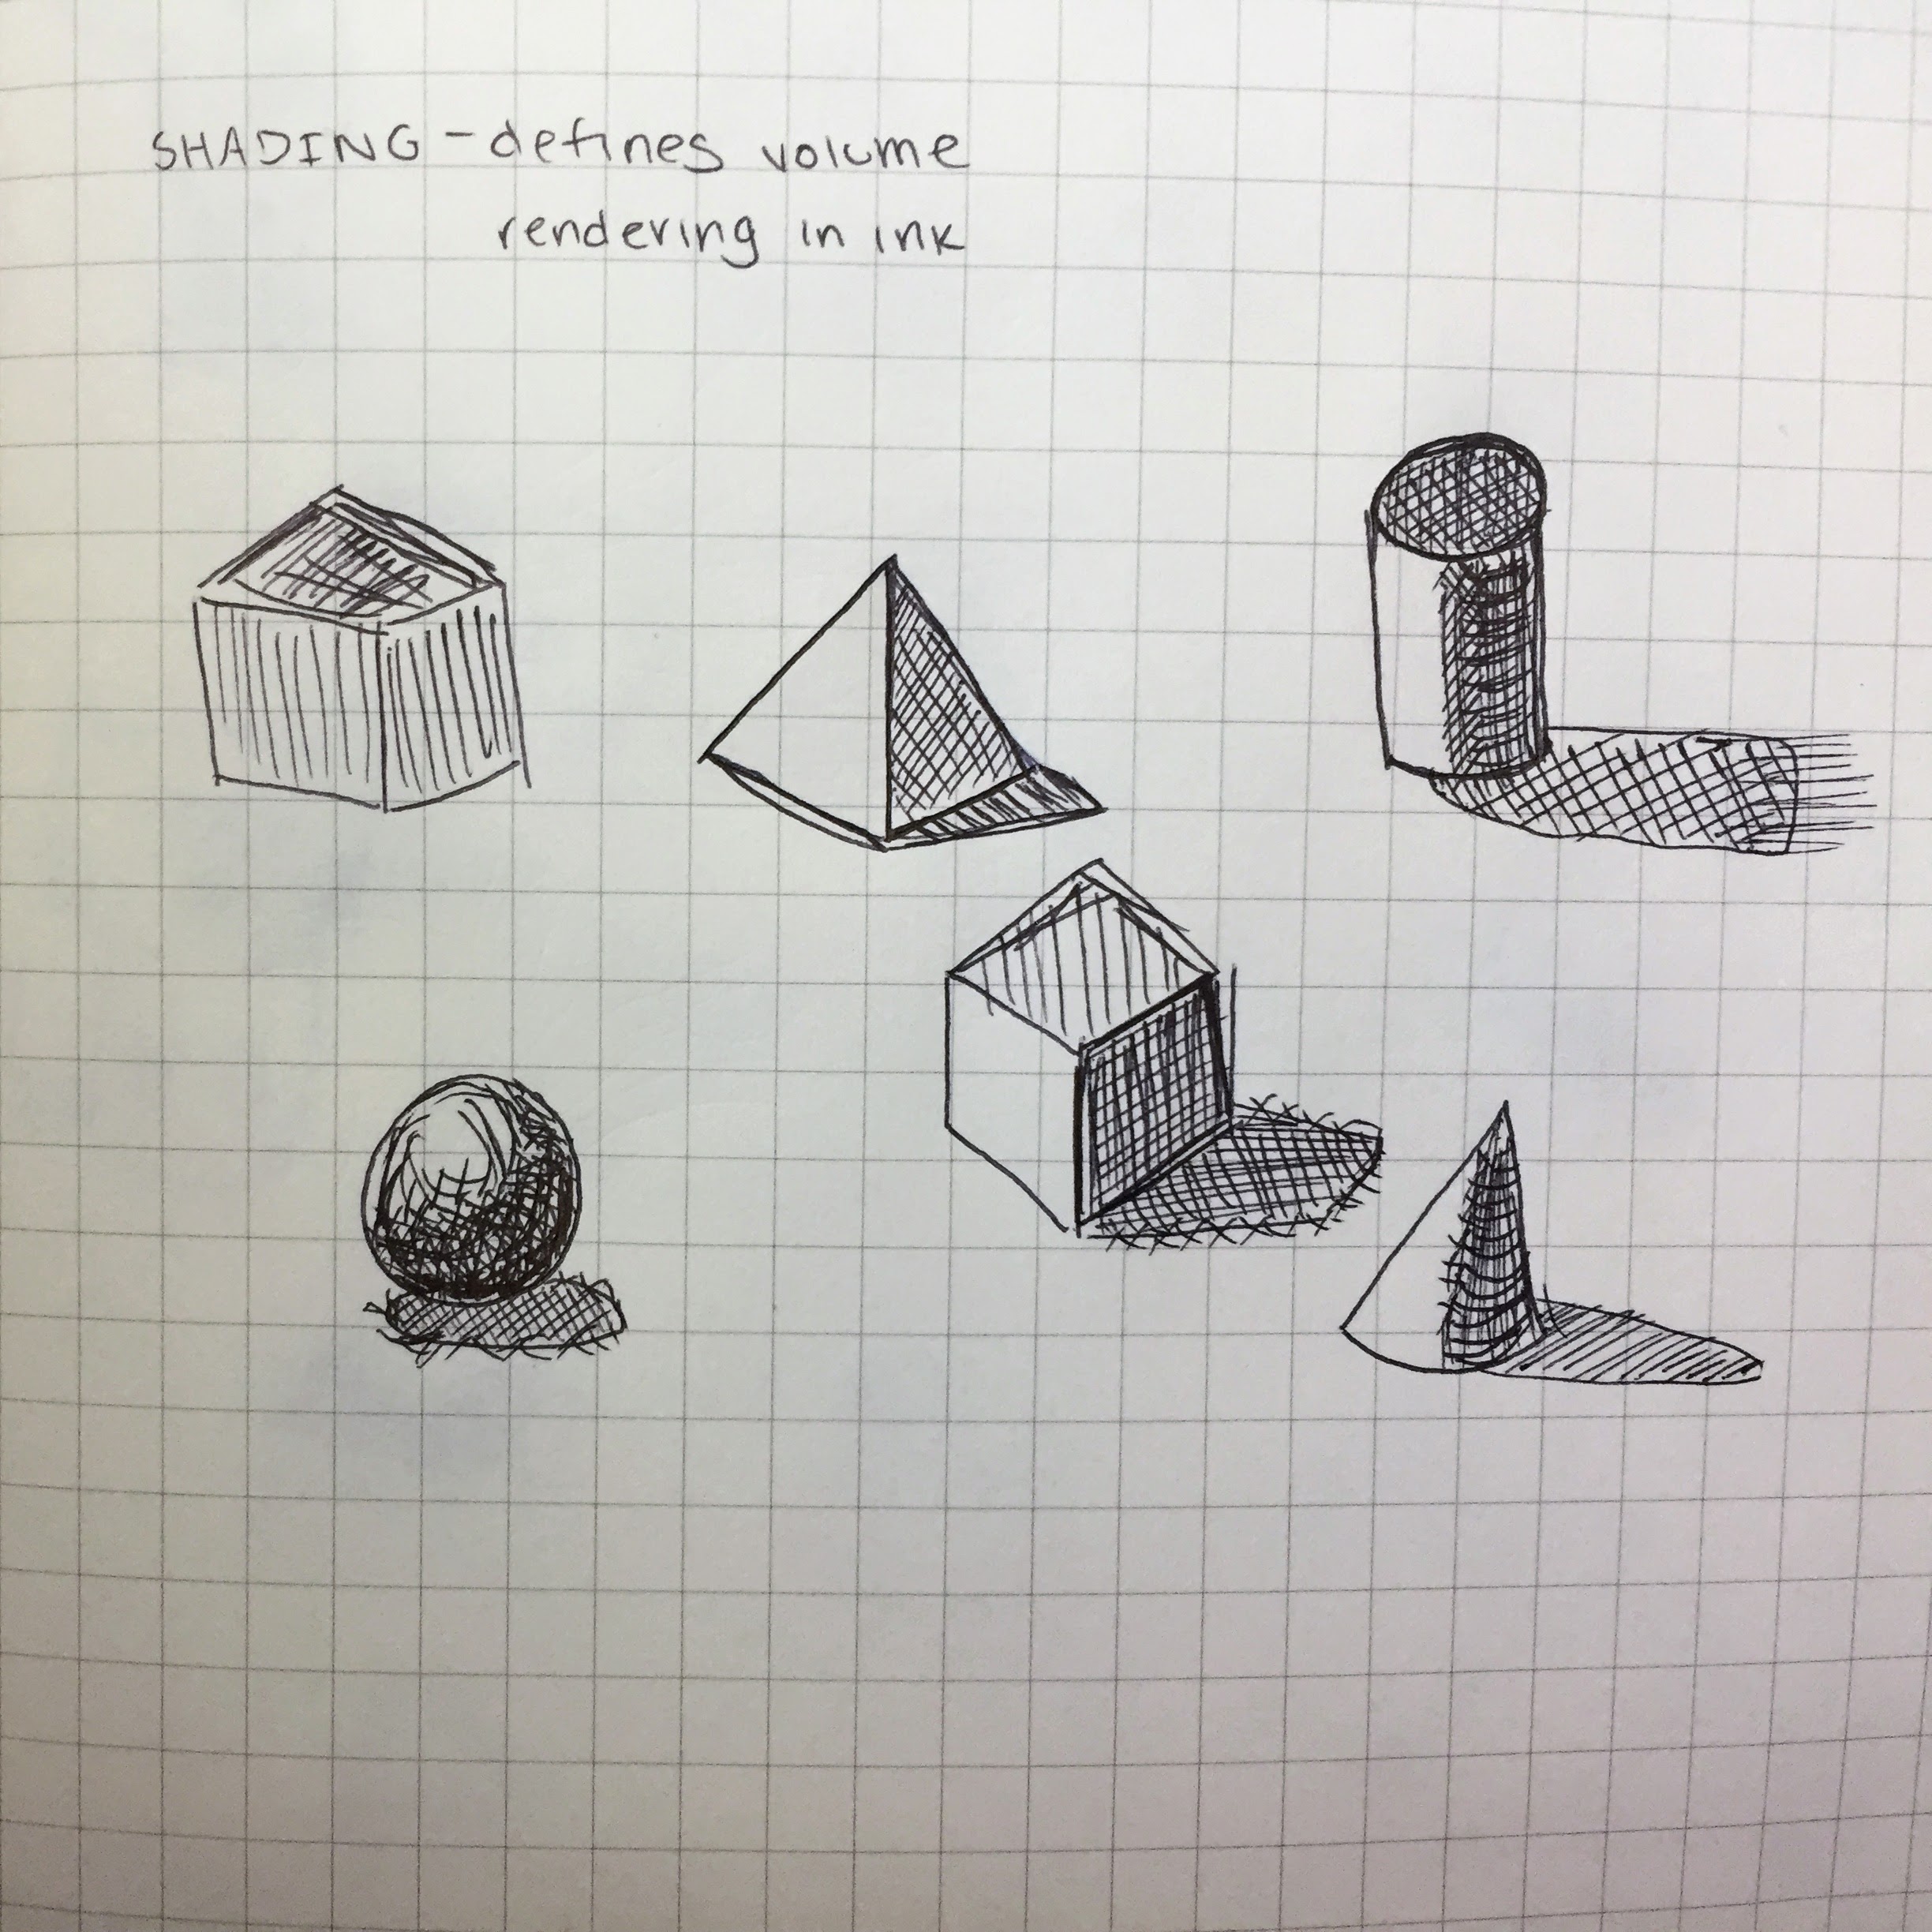 SHADING - defines volume
rendering in ink